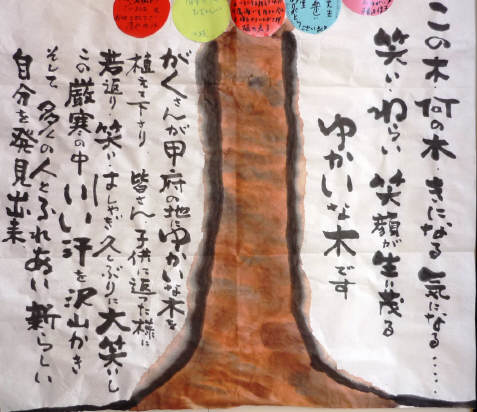 この木何の木きになる気になる‥‥‥
笑いわらい笑顔が生い茂る
ゆかいな木です
がくさんが甲府の地にゆかいな木を
植えて下さり皆さん子供に返った様に
若返り笑いはしゃぎ久しぶりに大笑いし
この厳寒の中いい汗を沢山かき
そして多くの人とふれあい新らしい
自分を発見出来、